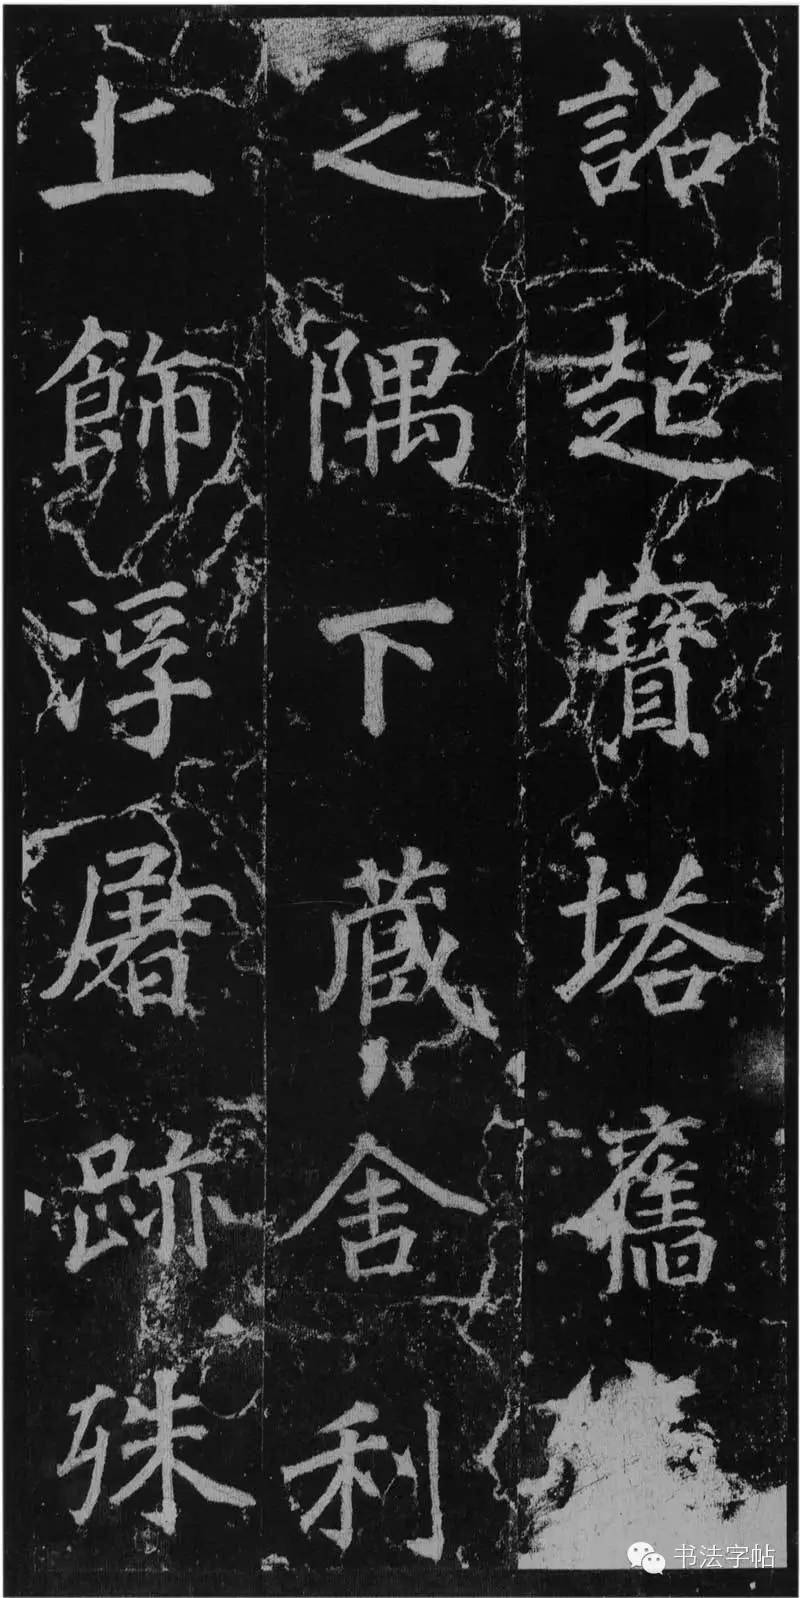 詔起寶塔舊
之隅下藏舍利
上飾浮屠跡殊
书法字帖